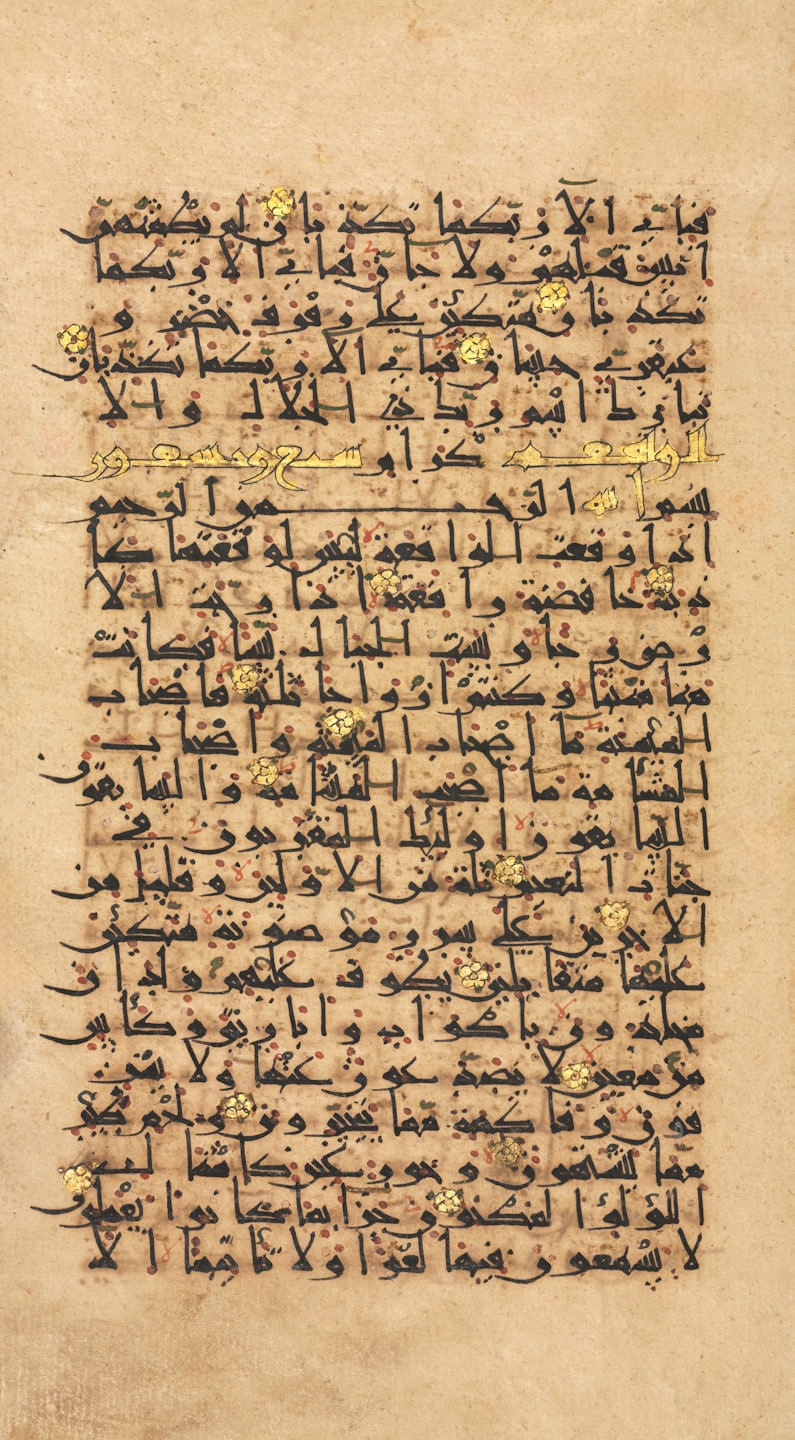 فباي الا ربكما تكذبان لم يطمثهن
انس قبلهم ولا جان فباي الا ربكما
تكذبان متكئين على رفرف خضر و
عبقري حسان فباي الا ربكما تكذبان
تبارك اسم ربك ذي الجلال والا
الواقعة كرام سبع وتسعون
بسم الله الرحمن الرحيم
اذا وقعت الواقعة ليس لوقعتها كا
ذبة خافضة رافعة اذا رجت الا
رض رجا وبست الجبال بسا فكانت
هبا منبثا وكنتم ازواجا ثلثة فاصحاب
الميمنة ما اصحاب الميمنة واصحاب
المشأمة ما اصحب المشأمة والسابقون
السابقون اولئك المقربون في
جنات النعيم ثلة من الاولين وقليل من
الاخرين على سرر موضونة متكئين
عليها متقابلين يطوف عليهم ولدان
مخلدون باكواب واباريق وكأس
من معين لا يصدعون عنها ولا ينز
فون وفاكهة مما يتخيرون ولحم طير
مما يشتهون وحور عين كامثال
اللؤلؤ المكنون جزا بما كانوا يعملون
لا يسمعون فيها لغوا ولا تأثيما الا